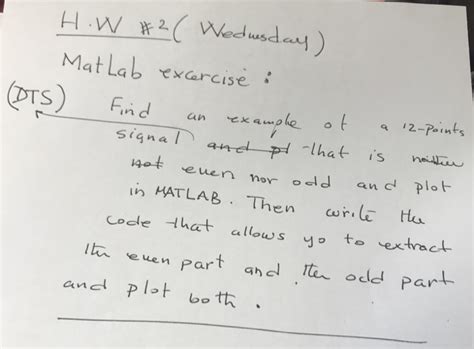 H.W #2 (Wednesday)
MatLab excercise :
(DTS) Find an example of a 12-points
signal and pl that is neither
not even nor odd and plot
in MATLAB. Then write the
code that allows yo to extract
the even part and the odd part
and plot both.